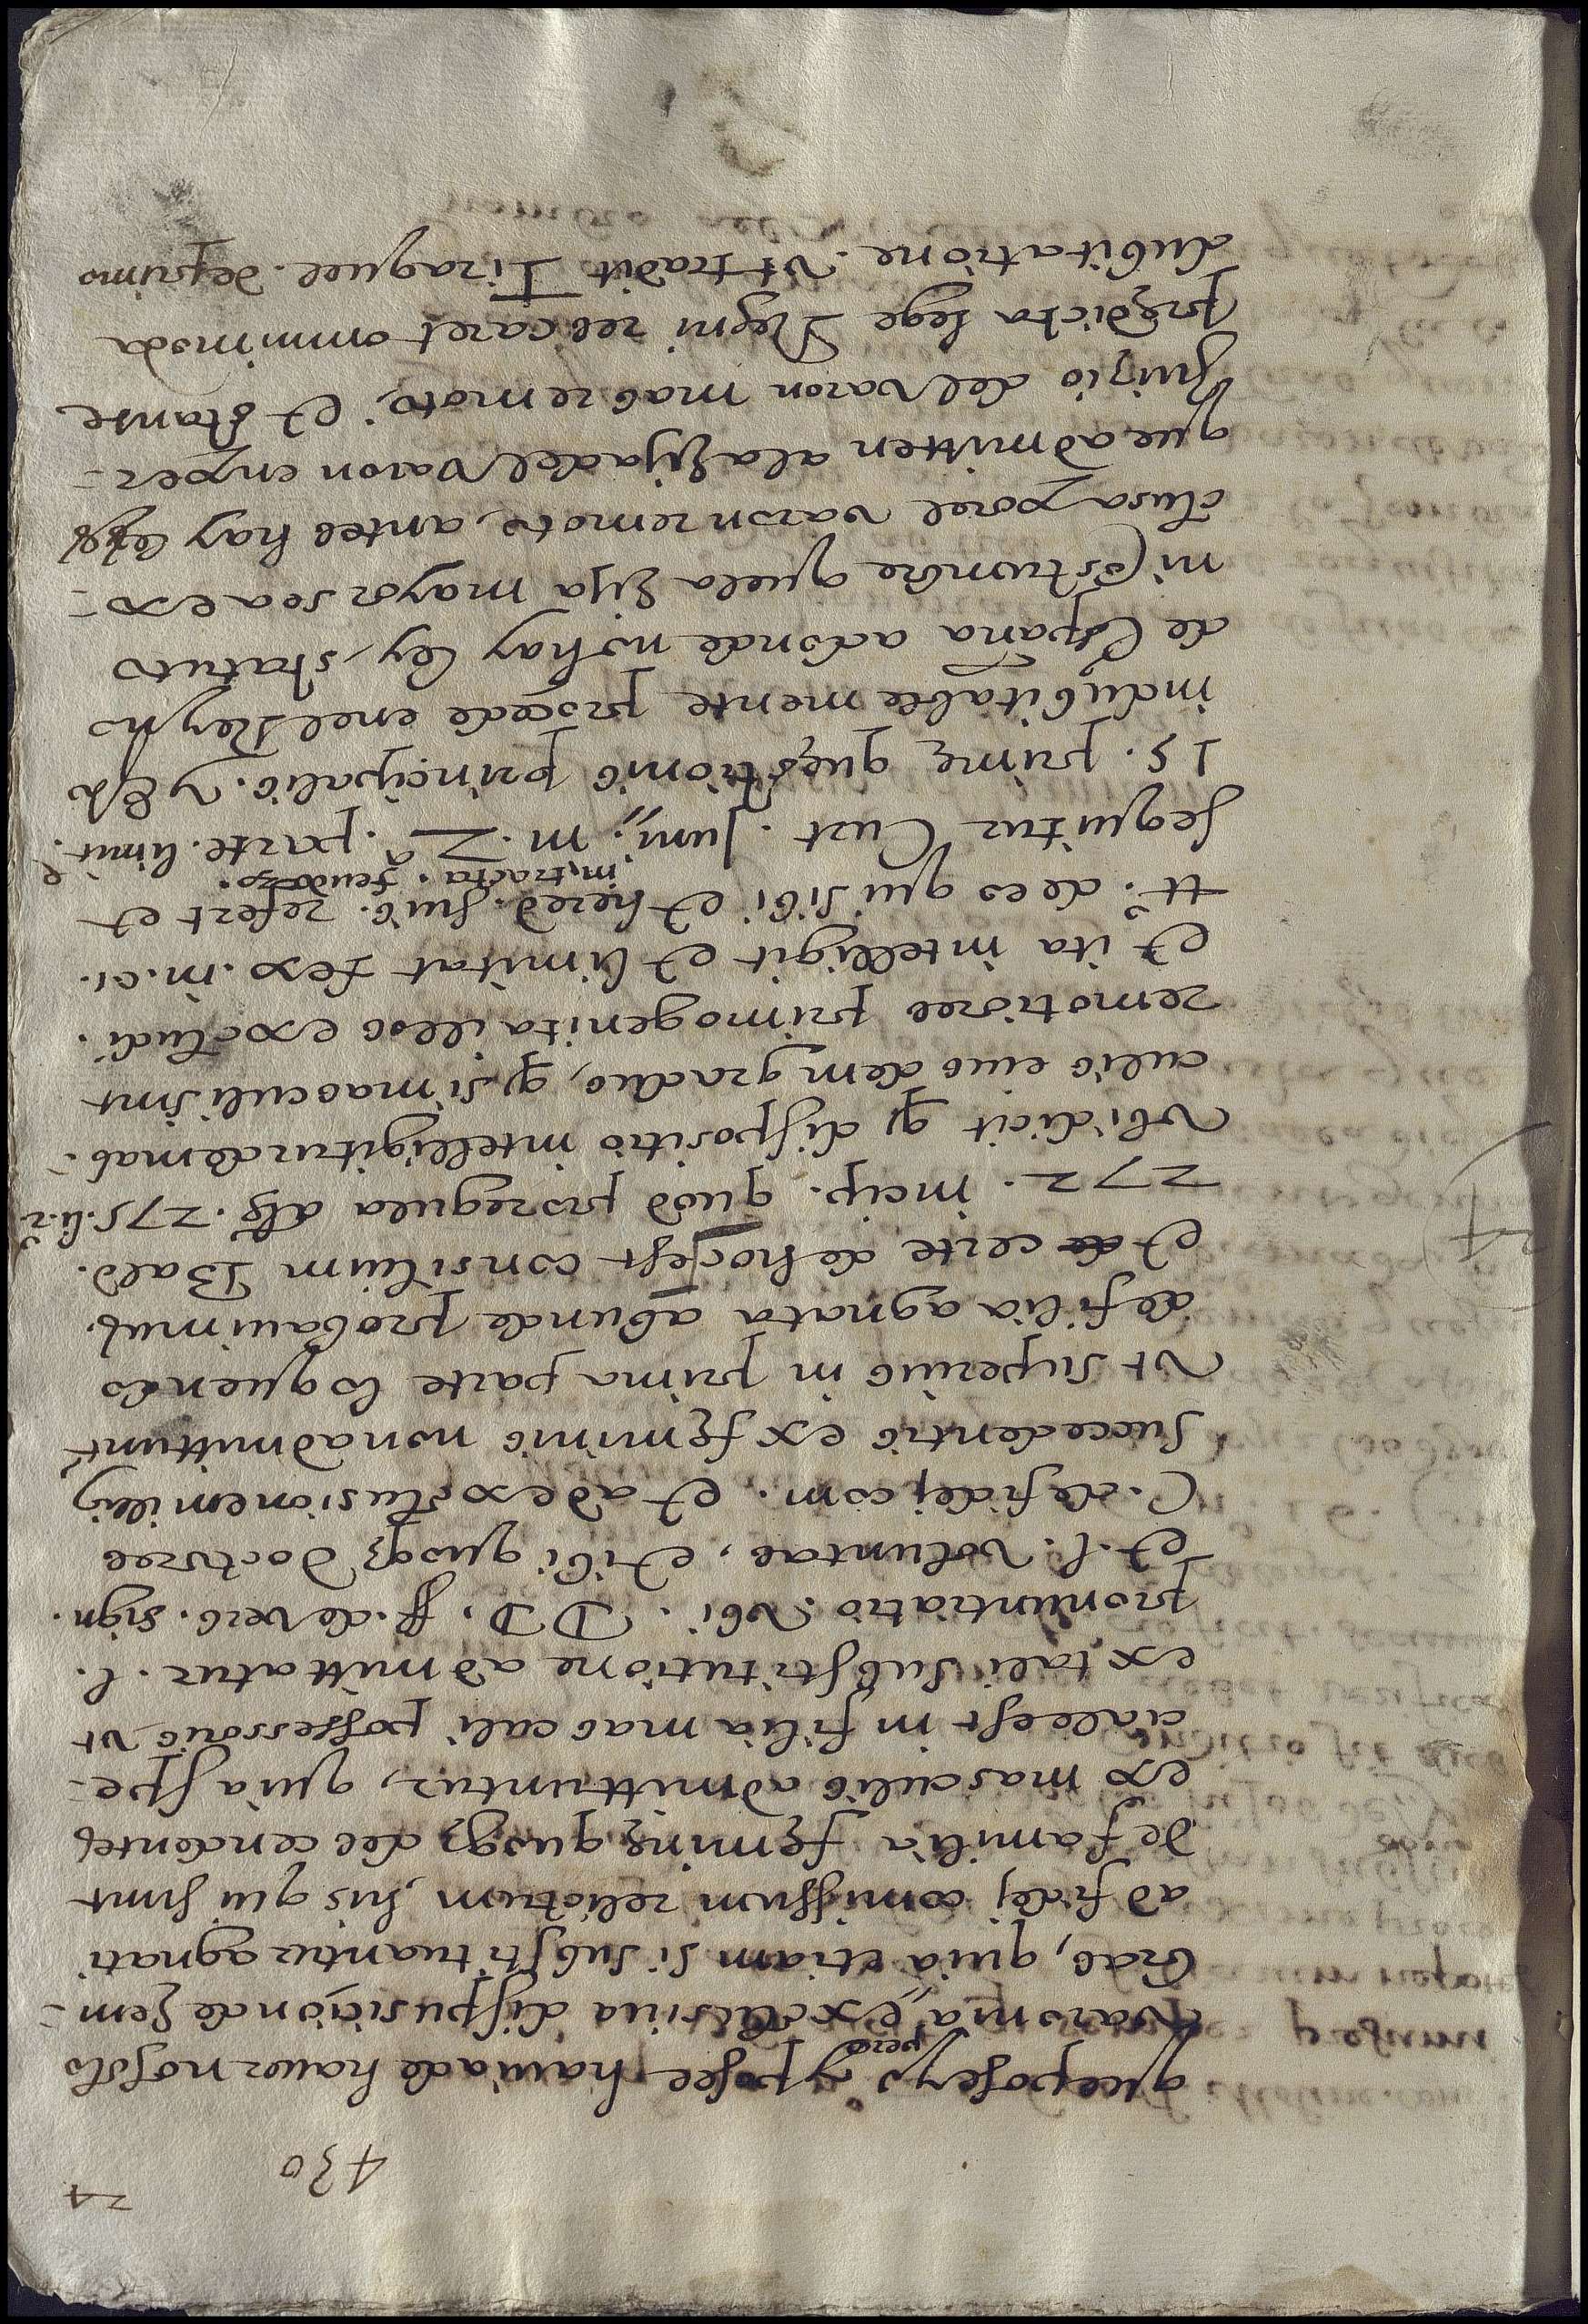 24
430
que poseyo pero y posee hauia de hauer no solo
varonia, exclusiua dispusicion de hem-
bras, quia etiam si substituantur agnati
ad fidej comissum relictum, his qui sunt
de familia feminę quoqz descendentes
ex masculis admittuntur, quia spe-
ciale est in filia masculi possessoris vt
ex tali substitutione admittatur. l.
pronuntiatio. vbi. DD. ff. de verb. sign.
et. l. voluntas, et ibi quoqz doctores
C. de fidej com. et ad exclusionem illiꝫ
succedentis ex feminis non admittunt
vt superius in prima parte loquendo
de filia agnata abunde probauimus.
et de certe de hoc est consilium Bald.
272. incip. quod pro regula als. 275. li. 2.
vbi dicit ꝙ dispositio intelligitur de mas-
culis eius dem gradus, ꝙ si masculi sint
remotiores primogenita illos excludi.
et ita intelligit et limitat tex. in. c. 1.
tt.º de eo qui sibi et hered. suis. refert et
in tracta. feudo.
sequitur Curt. Junj. in. 2.ª parte. limit.
15. primę quęstionis principalis. y esto
indubitable mente procede en el Reyno
de España adonde no hay ley, statuto
ni costumbre que la hija mayor sea ex-
clusa por el varon remoto, antes hay leyes
que admitten a la hija del varon en per-
huizio del varon mas remoto, et stante
predicta lege Regni res caret ommimoda
dubitatione. vt tradit Tiraquel. de primo